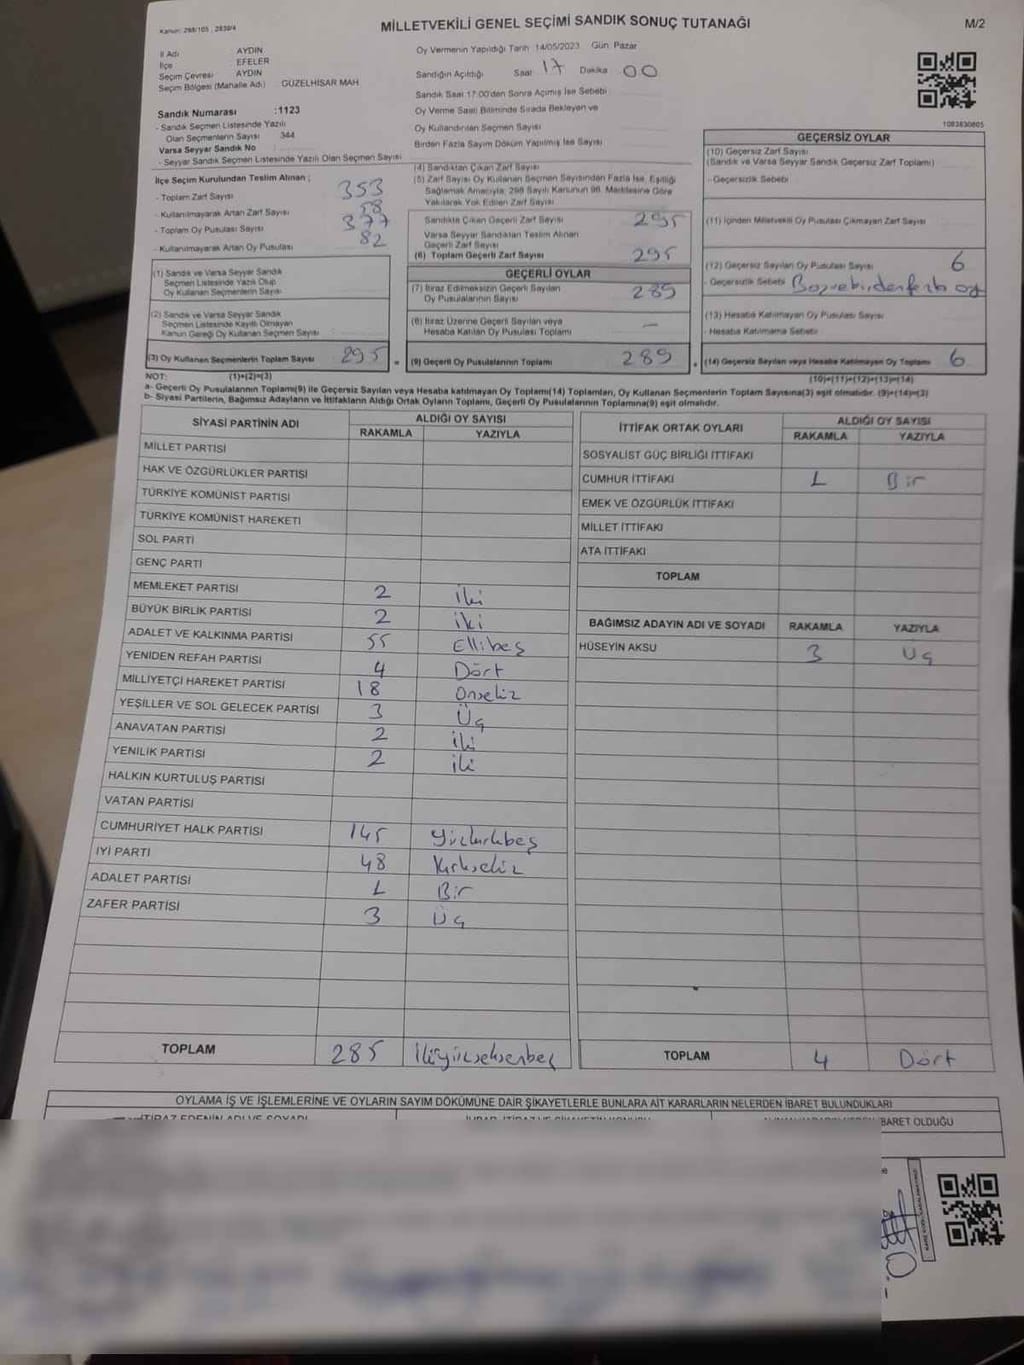 Kanun: 298/105 , 2839/4
MİLLETVEKİLİ GENEL SEÇİMİ SANDIK SONUÇ TUTANAĞI
M/2
İl Adı AYDIN
İlçe EFELER
Seçim Çevresi AYDIN
Seçim Bölgesi (Mahalle Adı) GÜZELHİSAR MAH
Sandık Numarası :1123
- Sandık Seçmen Listesinde Yazılı
Olan Seçmenlerin Sayısı 344
Varsa Seyyar Sandık No
- Seyyar Sandık Seçmen Listesinde Yazılı Olan Seçmen Sayısı
Oy Vermenin Yapıldığı Tarih 14/05/2023 Gün Pazar
Sandığın Açıldığı Saat 17 Dakika 00
Sandık Saat 17:00'den Sonra Açılmış İse Sebebi
Oy Verme Saati Bitiminde Sırada Bekleyen ve
Oy Kullandırılan Seçmen Sayısı
Birden Fazla Sayım Döküm Yapılmış İse Sayısı
1083830605
İlçe Seçim Kurulundan Teslim Alınan ;
- Toplam Zarf Sayısı 353
- Kullanılmayarak Artan Zarf Sayısı 58
- Toplam Oy Pusulası Sayısı 377
- Kullanılmayarak Artan Oy Pusulası 82
(1) Sandık ve Varsa Seyyar Sandık
Seçmen Listesinde Yazılı Olup
Oy Kullanan Seçmenlerin Sayısı
(2) Sandık ve Varsa Seyyar Sandık
Seçmen Listesinde Kayıtlı Olmayan
Kanun Gereği Oy Kullanan Seçmen Sayısı
(3) Oy Kullanan Seçmenlerin Toplam Sayısı 295
(4) Sandıktan Çıkan Zarf Sayısı
(5) Zarf Sayısı Oy Kullanan Seçmen Sayısından Fazla İse, Eşitliği
Sağlamak Amacıyla, 298 Sayılı Kanunun 98. Maddesine Göre
Yakılarak Yok Edilen Zarf Sayısı
Sandıkta Çıkan Geçerli Zarf Sayısı 295
Varsa Seyyar Sandıktan Teslim Alınan
Geçerli Zarf Sayısı
(6) Toplam Geçerli Zarf Sayısı 295
GEÇERLİ OYLAR
(7) İtiraz Edilmeksizin Geçerli Sayılan
Oy Pusulalarının Sayısı 289
(8) İtiraz Üzerine Geçerli Sayılan veya
Hesaba Katılan Oy Pusulası Toplamı —
= (9) Geçerli Oy Pusulalarının Toplamı 289
GEÇERSİZ OYLAR
(10) Geçersiz Zarf Sayısı
(Sandık ve Varsa Seyyar Sandık Geçersiz Zarf Toplamı)
- Geçersizlik Sebebi
(11) İçinden Milletvekili Oy Pusulası Çıkmayan Zarf Sayısı
(12) Geçersiz Sayılan Oy Pusulası Sayısı 6
- Geçersizlik Sebebi
(13) Hesaba Katılmayan Oy Pusulası Sayısı
- Hesaba Katılmama Sebebi
+ (14) Geçersiz Sayılan veya Hesaba Katılmayan Oy Toplamı 6
NOT: (1)+(2)=(3)
(10)+(11)+(12)+(13)=(14)
a- Geçerli Oy Pusulalarının Toplamı(9) ile Geçersiz Sayılan veya Hesaba katılmayan Oy Toplamı(14) Toplamları, Oy Kullanan Seçmenlerin Toplam Sayısına(3) eşit olmalıdır. (9)+(14)=(3)
b- Siyasi Partilerin, Bağımsız Adayların ve İttifakların Aldığı Ortak Oyların Toplamı, Geçerli Oy Pusulalarının Toplamına(9) eşit olmalıdır.
SİYASİ PARTİNİN ADI ALDIĞI OY SAYISI
RAKAMLA YAZIYLA
MİLLET PARTİSİ
HAK VE ÖZGÜRLÜKLER PARTİSİ
TÜRKİYE KOMÜNİST PARTİSİ
TÜRKİYE KOMÜNİST HAREKETİ
SOL PARTİ
GENÇ PARTİ
MEMLEKET PARTİSİ 2 İki
BÜYÜK BİRLİK PARTİSİ 2 İki
ADALET VE KALKINMA PARTİSİ 55 Ellibeş
YENİDEN REFAH PARTİSİ 4 Dört
MİLLİYETÇİ HAREKET PARTİSİ 18 Onsekiz
YEŞİLLER VE SOL GELECEK PARTİSİ 3 Üç
ANAVATAN PARTİSİ 2 İki
YENİLİK PARTİSİ 2 İki
HALKIN KURTULUŞ PARTİSİ
VATAN PARTİSİ
CUMHURİYET HALK PARTİSİ 145 Yüzkırkbeş
İYİ PARTİ 48 Kırksekiz
ADALET PARTİSİ 1 Bir
ZAFER PARTİSİ 3 Üç
TOPLAM 285 İkiyüzseksenbeş
İTTİFAK ORTAK OYLARI ALDIĞI OY SAYISI
RAKAMLA YAZIYLA
SOSYALİST GÜÇ BİRLİĞİ İTTİFAKI
CUMHUR İTTİFAKI 1 Bir
EMEK VE ÖZGÜRLÜK İTTİFAKI
MİLLET İTTİFAKI
ATA İTTİFAKI
TOPLAM
BAĞIMSIZ ADAYIN ADI VE SOYADI RAKAMLA YAZIYLA
HÜSEYİN AKSU 3 Üç
TOPLAM 4 Dört
OYLAMA İŞ VE İŞLEMLERİNE VE OYLARIN SAYIM DÖKÜMÜNE DAİR ŞİKAYETLERLE BUNLARA AİT KARARLARIN NELERDEN İBARET BULUNDUKLARI
İTİRAZ EDENİN ADI VE SOYADI
BARET OLDUĞU